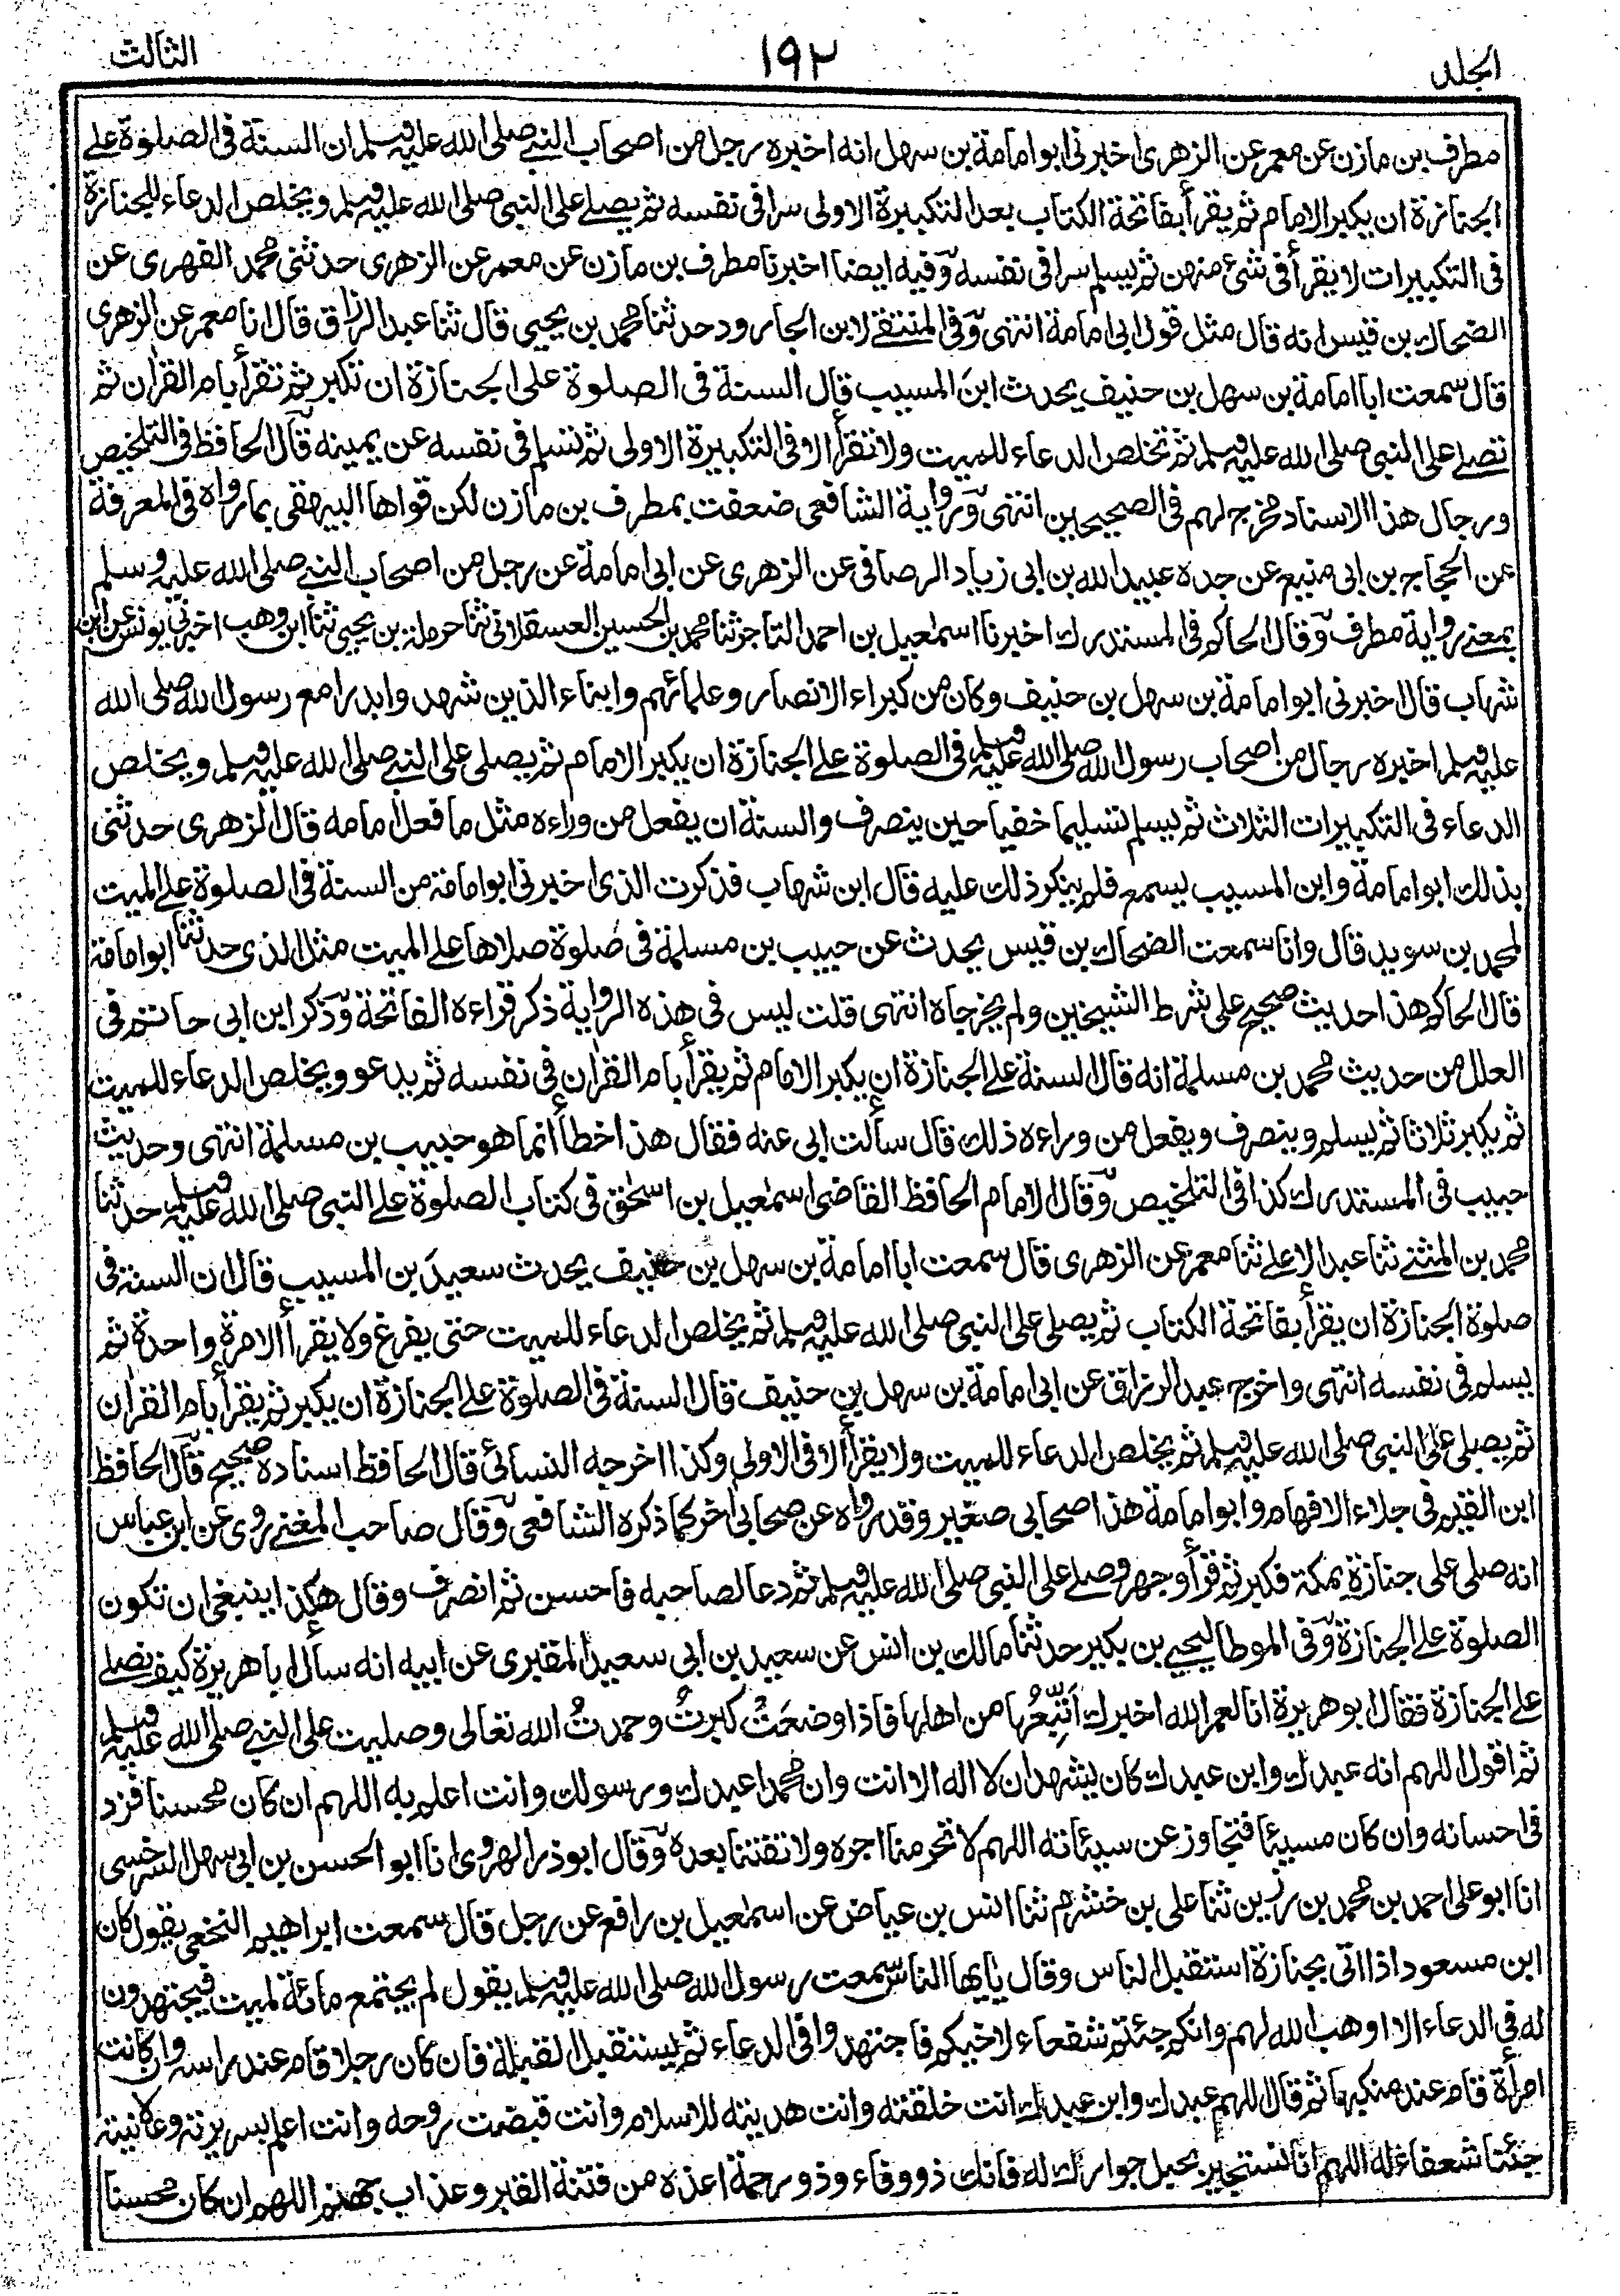 الجلد ١٩٢ الثالث
مطرف بن مازن عن معمر عن الزهرى اخبرنى ابوامامة بن سهل انه اخبره رجل من اصحاب النبى صلى الله عليه وسلم ان السنة فى الصلوة على
الجنازة ان يكبر الامام ثم يقرأ بفاتحة الكتاب بعد التكبيرة الاولى سرا فى نفسه ثم يصلے على النبى صلى الله عليه وسلم ويخلص الدعاء للجنازة
فى التكبيرات لا يقرأ فى شئ منهن ثم يسلم سرا فى نفسه وفيه ايضا اخبرنا مطرف بن مازن عن معمر عن الزهرى حدثنى محمد الفهرى عن
الضحاك بن قيس انه قال مثل قول ابى امامة انتهى وفى المنتقے لابن الجارود حدثنا محمد بن يحيى قال ثنا عبد الرزاق قال انا معمر عن الزهرى
قال سمعت ابا امامة بن سهل بن حنيف يحدث ابن المسيب قال السنة فى الصلوة على الجنازة ان تكبر ثم تقرأ بام القرأن ثم
تصلے على النبى صلى الله عليه وسلم ثم تخلص الدعاء للميت ولا تقرأ الا فى التكبيرة الاولى ثم تسلم فى نفسه عن يمينه قال الحافظ فى التلخيص
ورجال هذا الاسناد مخرج لهم فى الصحيحين انتهى ورواية الشافعى ضعفت بمطرف بن مازن لكن قواها البيهقى بما رواه فى المعرفة
عن الحجاج بن ابى منيع عن جده عبيد الله بن ابى زياد الرصافى عن الزهرى عن ابى امامة عن رجل من اصحاب النبى صلى الله عليه وسلم
بمعنے رواية مطرف وقال الحاكم فى المستدرك اخبرنا اسمعيل بن احمد التاجر ثنا محمد بن الحسين العسقلانى ثنا حرملة بن يحيى ثنا ابن وهب اخبرنى يونس عن ابن
شهاب قال اخبرنى ابوامامة بن سهل بن حنيف وكان من كبراء الانصار وعلمائهم وابناء الذين شهدوا بدرا مع رسول الله صلى الله
عليه وسلم اخبره رجال من اصحاب رسول الله صلى الله عليه وسلم فى الصلوة على الجنازة ان يكبر الامام ثم يصلى على النبى صلى الله عليه وسلم ويخلص
الدعاء فى التكبيرات الثلاث ثم يسلم تسليما خفيا حين ينصرف والسنة ان يفعل من وراءه مثل ما فعل امامه قال الزهرى حدثنى
بذلك ابوامامة وابن المسيب يسمع فلم ينكر ذلك عليه قال ابن شهاب فذكرت الذى اخبرنى ابوامامة من السنة فى الصلوة على الميت
لمحمد بن سويد قال وانا سمعت الضحاك بن قيس يحدث عن حبيب بن مسلمة فى صلوة صلاها على الميت مثل الذى حدثنا ابوامامة
قال الحاكم هذا حديث صحيح على شرط الشيخين ولم يخرجاه انتهى قلت ليس فى هذه الرواية ذكر قراءة الفاتحة وذكر ابن ابى حاتم فى
العلل من حديث محمد بن مسلمة انه قال السنة على الجنازة ان يكبر الامام ثم يقرأ بام القرأن فى نفسه ثم يدعو ويخلص الدعاء للميت
ثم يكبر ثلاثا ثم يسلم وينصرف ويفعل من وراءه ذلك قال سألت ابى عنه فقال هذا خطأ انما هو حبيب بن مسلمة انتهى وحديث
حبيب فى المستدرك كذا فى التلخيص وقال الامام الحافظ القاضى اسمعيل بن اسحق فى كتاب الصلوة على النبى صلى الله عليه وسلم حدثنا
محمد بن المثنے ثنا عبد الاعلے ثنا معمر عن الزهرى قال سمعت ابا امامة بن سهل بن حنيف يحدث سعيد بن المسيب قال ان السنة فى
صلوة الجنازة ان يقرأ بفاتحة الكتاب ثم يصلى على النبى صلى الله عليه وسلم ثم يخلص الدعاء للميت حتى يفرغ ولا يقرأ الا مرة واحدة ثم
يسلم فى نفسه انتهى واخرج عبد الرزاق عن ابى امامة بن سهل بن حنيف قال السنة فى الصلوة على الجنازة ان يكبر ثم يقرأ بام القرأن
ثم يصلى على النبى صلى الله عليه وسلم ثم يخلص الدعاء للميت ولا يقرأ الا فى الاولى وكذا اخرجه النسائى قال الحافظ اسناده صحيح قال الحافظ
ابن القيم فى جلاء الافهام وابوامامة هذا صحابى صغير وقد رواه عن صحابى اخر كما ذكره الشافعى وقال صاحب المغنے روى عن ابن عباس
انه صلى على جنازة بمكة فكبر ثم قرأ وجهر وصلے على النبى صلى الله عليه وسلم ثم دعا لصاحبه فاحسن ثم انصرف وقال هكذا ينبغى ان تكون
الصلوة على الجنازة وفى الموطا ليحيى بن بكير حدثنا مالك بن انس عن سعيد بن ابى سعيد المقبرى عن ابيه انه سأل ابا هريرة كيف يصلے
على الجنازة فقال ابو هريرة انا لعمر الله اخبرك اَتَّبِعُها من اهلها فاذا وضعت كبرتُ وحمدتُ الله تعالى وصليت على النبى صلى الله عليه وسلم
ثم اقول اللهم انه عبدك وابن عبدك كان يشهد ان لا اله الا انت وان محمدا عبدك ورسولك وانت اعلم به اللهم ان كان محسنا فزد
فى احسانه وان كان مسيئا فتجاوز عن سيئاته اللهم لا تحرمنا اجره ولا تفتنا بعده وقال ابوذر الهروى انا ابو الحسن بن ابى سهل السرخسى
انا ابو على احمد بن محمد بن رزين ثنا على بن خشرم ثنا انس بن عياض عن اسمعيل بن رافع عن رجل قال سمعت ابراهيم النخعى يقول كان
ابن مسعود اذا اتى بجنازة استقبل الناس وقال يايها الناس سمعت رسول الله صلى الله عليه وسلم يقول لم يجتمع مائة لميت فيجتهدون
له فى الدعاء الا وهب الله لهم وانكم جئتم شفعاء لاخيكم فاجتهدوا فى الدعاء ثم يستقبل القبلة فان كان رجلا قام عند راسه وان كانت
امرأة قام عند منكبها ثم قال اللهم عبدك وابن عبدك انت خلقته وانت هديته للاسلام وانت قبضت روحه وانت اعلم بسريرته وعلانيته
جئنا شفعاء له اللهم انا نستجير بحبل جوارك له فانك ذو وفاء وذو رحمة اعذه من فتنة القبر وعذاب جهنم اللهم ان كان محسنا